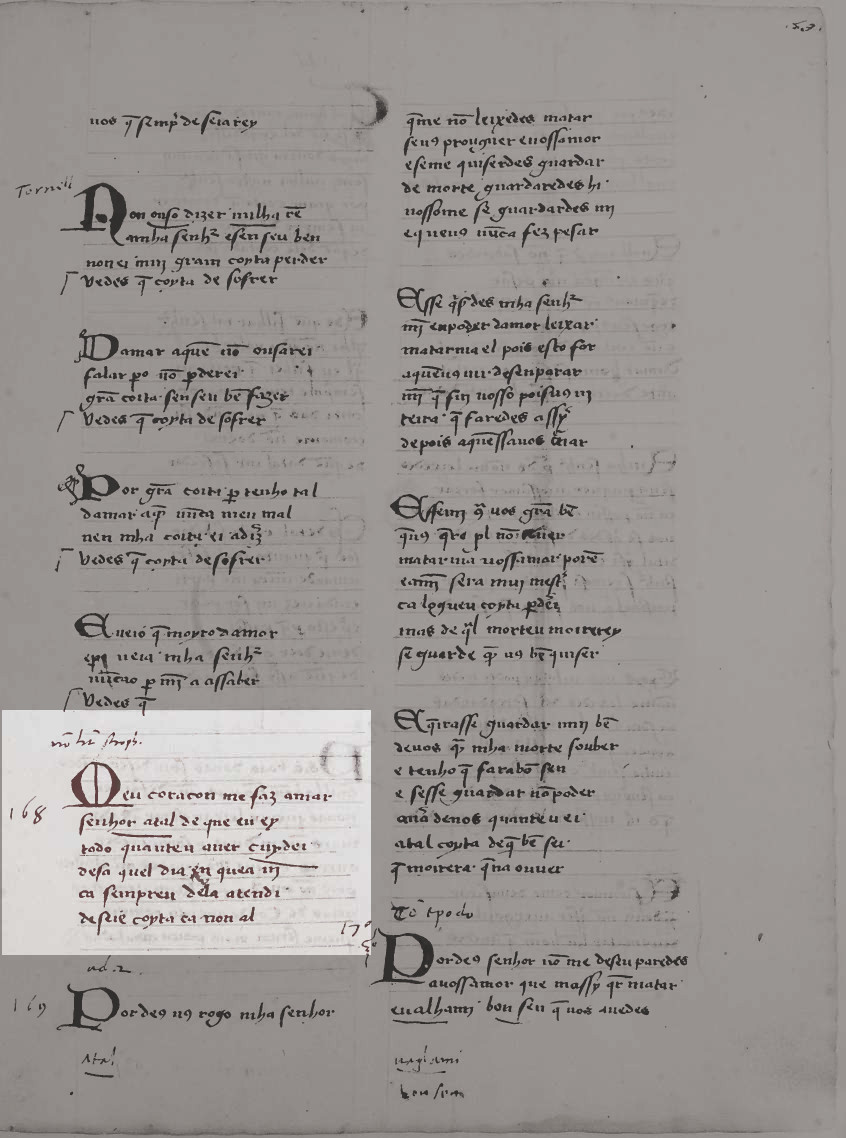 uos q̄ semp̄ deseiarey
Tornell
Non ouso dizer milha rē
amha senhr̄ esen seu ben
non ei mui gram coyta perder
Vedes q̄ coyta de sofrer
Damar aquē nō ousarei
falar ꝑo nō ꝑderei
grā coita sen seu bē fazer
Vedes q̄ coyta de sofrer
Por grā coita ꝑ tenho tal
damar a q̄ nūca meu mal
nen mha coita ei adiz̄
Vedes q̄ coyta de sofrer
E ueio q̄ moyro damor
e ueia mha senhr̄
nūcao ꝑ mī a assaber
Vedes q̄
168
Meu coracon me faz amar
senhor atal de que eu ey
todo quanteu auer cuydei
desa quel dia en que a ui
ca sempreu dela atendi
deseie coyta ca non al
ad. 2.
169
Pordeꝯ uꝯ rogo mha senhor
Atal
q̄me nō leixedes matar
seuꝯ prouguer euossamor
eseme quiserdes guardar
de morte guardaredes hi
uossome se guardardes mi
equeuꝯ nūca fez pesar
Esse q̄sdes mha senhr̄
mī enpoder damor leixar
matarma el pois esto for
aqueuꝯ uir desenparar
mī q̄ fui uosso poisuꝯ ui
terra q̄ faredes assy
depois aquessauos tornar
Essemi uos grā bē
quuꝯ q̄ro pl nō
matarma uossamor porē
eamī sera mui mest
ca logueu coyta ꝑder
mas de q̄l morteu moirerey
se guarde q̄ uꝯ bē quiser
E q̄rasse guardar mui bē
deuos q̄ mha morte souber
e tenho q̄ farabō sen
e sesse guardar nō poder
aurā deuos quanteu ei
atal coyta deq̄ bē sei
q̄ moirera q̄na ouuer
170
Pordeꝯ senhor nō me desenparedes
auossamor que massy q̄r matar
eualhami bon sen q̄ uos auedes
ualhami
bon sen